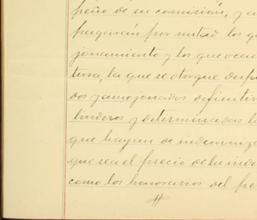 peño de su comisión, y a
pagarán por mitad los g
zonamiento y los que oca
tura, la que se otorgue desp
dos y amojonados definitiv
linderos y determinados l
que hayan de indemniza
que sea el precio de la inde
como los honorarios del pe